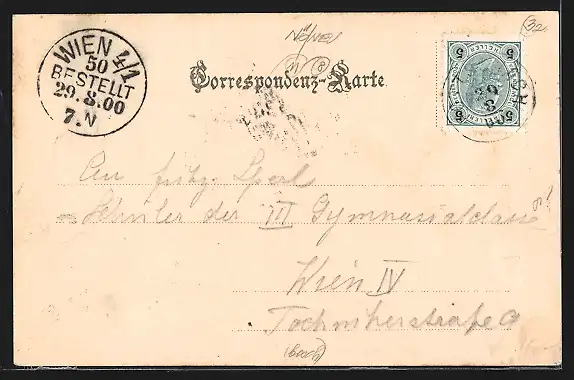 32
WIEN 4/1
50
BESTELLT
29.8.00
7.N
Correspondenz-Karte
5 HELLER 5
29
8
00
An Fritz Sperl
Schüler der III Gymnasialclasse
Wien IV
Technikerstraße 9